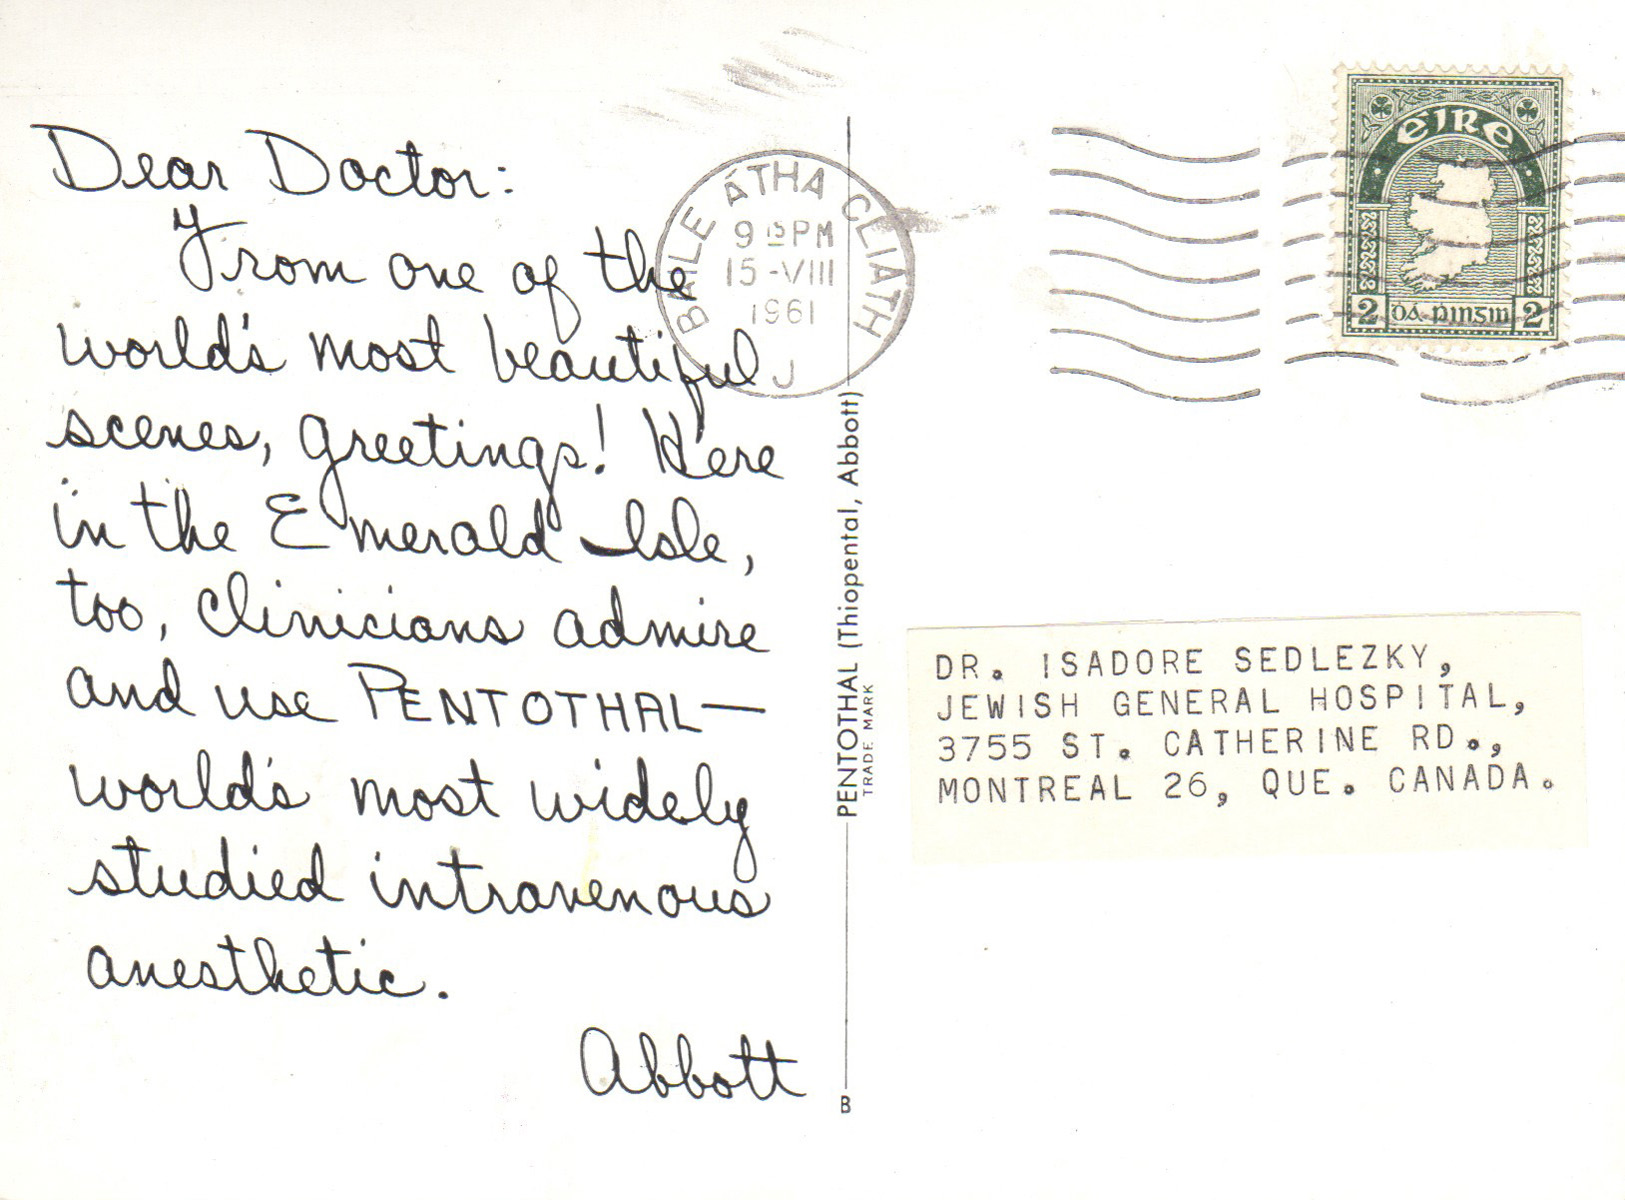 Dear Doctor:
From one of the
world's most beautiful
scenes, greetings! Here
in the Emerald Isle,
too, clinicians admire
and use PENTOTHAL—
world's most widely
studied intravenous
anesthetic.
Abbott
BAILE ÁTHA CLIATH
9 15 PM
15-VIII
1961
J
PENTOTHAL (Thiopental, Abbott)
TRADE MARK
B
ÉIRE
2 Dá pinginn 2
DR. ISADORE SEDLEZKY,
JEWISH GENERAL HOSPITAL,
3755 ST. CATHERINE RD.,
MONTREAL 26, QUE. CANADA.